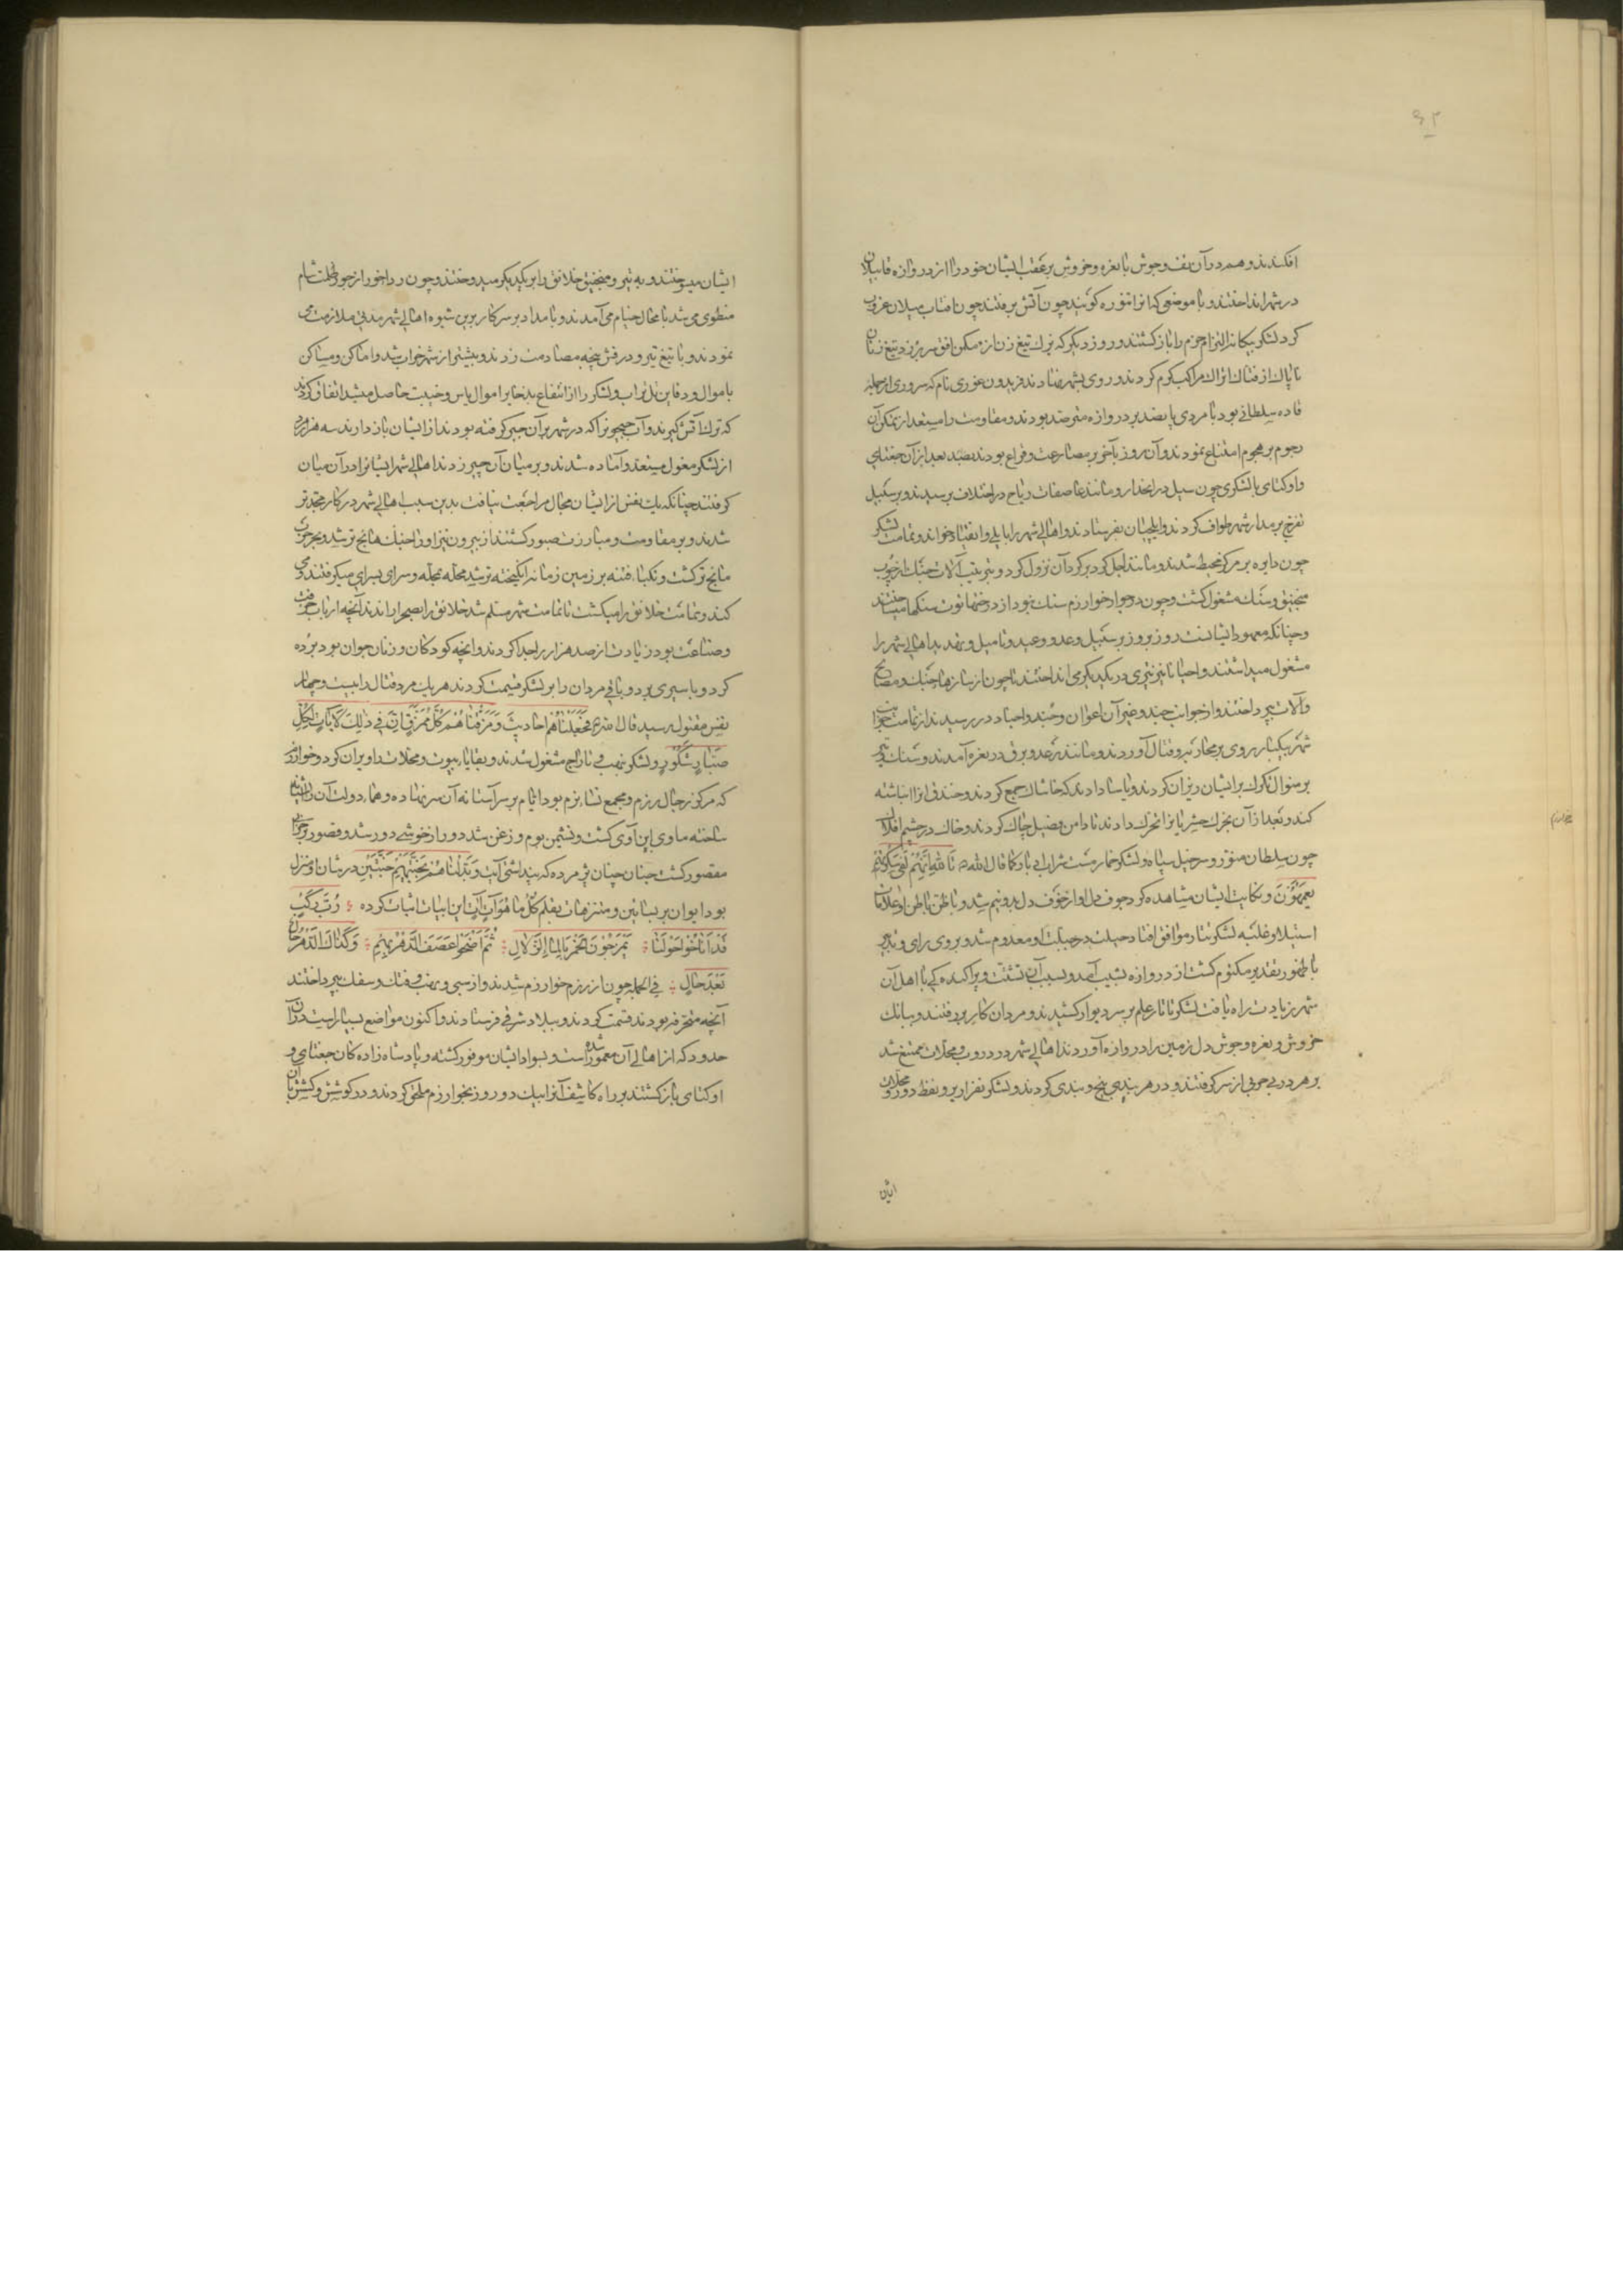 ۶۲
افکندند و هم در آن تف و جوش با نعره و خروش بر عقب ایشان خود را از دروازه قابیلان
در شهر انداختند و تا موضعی که آنرا تنوره کویند چون آتش برفتند چون آفتاب میلان غروب
کرد لشکر بیکانه التزام حزم را بازکشتند و روز دیکر که ترک تیغ زن از مکمن افق سر بر زد تیغ زنان
ناپاک از فتاک اتراک مراکب کرم کردند و روی بشهر نهادند فریدون غوری نام که سروری از جمله
قاده سلطانی بود با مردی پانصد بر دروازه مترصد بودند و مقاومت را مستعد از تمکن آن
رجوم بر هجوم امتناع نمودند و آن روز تا آخر بر مصارعت و قراع بودند بعد از آن جغتای
و اوکتای با لشکری چون سیل در انحدار و مانند عاصفات ریاح در اختلاف برسیدند و بر سبیل
تفرج بر مدار شهر طواف کردند و ایلچیان بفرستادند و اهالی شهر را بایلی و انقیاد خواند و تمامت لشکر
چون دایره بر مرکز محیط شدند و مانند اجل کرد بر کرد آن نزول کرد و بترتیب آلات جنک از چوب
منجنیق و سنک مشغول کشت و چون در جوار خوارزم سنک نبود از درختهاء توت سنکها میساختند
و چنانکه معهود ایشانست روز بروز بر سبیل وعد و وعید و تامیل و تهدید اهالی شهر را
مشغول میداشتند و احیانا نیز تیری در یکدیکر می انداختند تا چون از سازهاء جنک و مصالح
و آلات بپرداختند و از جوانب جند و غیر آن اعوان و جند و اجناد در رسیدند از تمامت جوانب
شهر بیکبار روی بمحاربه و قتال آوردند و مانند رعد و برق در نعره آمدند و سنک و تیر
بر منوال تکرک بر ایشان ریزان کردند و یاسا دادند که خاشاک جمع کردند و خندق را انباشته
کنند و بعد از آن بحرک حشریانرا تحرک دادند تا دامن فصیل چاک کردند و خاک در چشم افلاک
چون سلطان مزور و سرخیل سپاه و لشکر خمار مست شراب ادبار و کما قال الله تالله انهم لفی سکرتهم
یعمهون و نکایت ایشان مشاهده کرد جوف دل او از خوف دل بدو نیم شد و با ظن باطن او علامات
استیلا و غلبه لشکر تتار موافق افتاد حیلت در جبلت او معدوم شد و بر وی رای و تدبیر
با ظهور تقدیر مکتوم کشت از دروازه بشیب آمد و بسبب آن تشتت و پراکنده کی با اهل آن
شهر زیادت راه یافت لشکر تاتار علم بر سر دیوار کشیدند و مردان کار بر رفتند و ببانک
خروش و نعره و جوش دل زمین را در آوازه آوردند اهالی شهر در دروب و محلات ممتنع شد
بر هر دربی حربی از سر کرفتند و در هر بندی پنج و بندی کردند و لشکر بقواریر و نفط دور و محلات
ایشان
ایشان میسوختند و به تیر و منجنیق خلایق را بر یکدیکر میدوختند و چون رداء خور از جور ظلمت شام
منطوی می شد با محال خیام می آمدند و بامداد بر سر کار برین شیوه اهالی شهر مدتی ملازمت می
نمودند و با تیغ و تیر و درفش پنجه مصادمت زدند و بیشتر از شهر خراب شد و اماکن و مساکن
با اموال و دفاین تل تراب و لشکر را از انتفاع بذخایر اموال یاس و خیبت حاصل میشد اتفاق کردند
که ترک آتش کیرند و آب جیحونرا که در شهر بر آن جسر کرفته بودند از ایشان باز دارند سه هزار مرد
از لشکر مغول مستعد و آماده شدند و بر میان آن جسر زدند اهالی شهر ایشانرا در آن میان
کرفتند چنانکه یک نفس از ایشان مجال مراجعت نیافت بدین سبب اهالی شهر در کار مجدتر
شدند و بر مقاومت و مبارزت صبور کشتند از بیرون نیز اوزار جنک هایج تر شد و بحر حرب
مایج تر کشت و نکباء فتنه بر زمین زمانه انکیخته تر شد محله بمحله و سرای بسرای میکرفتند و می
کند و تمامت خلایق را میکشت تا تمامت شهر مسلم شد خلایق را بصحرا راندند آنچه ارباب حرفت
و صناعت بود زیادت از صد هزار را جدا کردند و آنچه کودکان و زنان جوان بود برده
کرد و باسیری برد و باقی مردان را بر لشکر قسمت کردند هر یک مرد قتال را بیست و چهار
نفس مقتول رسید قال عز عز فجعلناهم احادیث و مزقناهم کل ممزق ان فی ذلک لآیات لکل
صبار شکور و لشکر بنهب و تاراج مشغول شدند و بقایاء بیوت و محلات را ویران کرد و خوارزم
که مرکز رجال رزم و مجمع نساء بزم بود ایام سر بر آستانه آن نهاده و هماء دولت آن را آشیانه
ساخته ماوی ابن آوی کشت و نشیمن بوم و زغن شد دور از خوشی دور شد و قصور بر خرابی
مقصور کشت جنان چنان پژمرده که پنداشتی آیت و بدلناهم بجنتیهم جنتین در شان او منزل
بود ایوان بر بساتین و متنزهات بقلم کل ما هو آت آت این ابیات اثبات کرده رب رکب
قد اناخوا حولنا یمزجون الخمر بالماء الزلال ثم اضحوا عصف الدهر بهم و کذاک الدهر حال
بعد حال فی الجمله چون از رزم خوارزم شدند و از سبی و نهب و فتک و سفک بپرداختند
آنچه محترفه بودند قسمت کردند و ببلاد شرقی فرستادند و اکنون مواضع بسیار است در آن
حدود که از اهالی آن معمور شده است و بسواد ایشان موفور کشته و پادشاه زاده کان جغتای و
اوکتای بازکشتند بر راه کاسف آنرا بیک دو روز بخوارزم ملحق کردند و در کوشش و کشش با آن